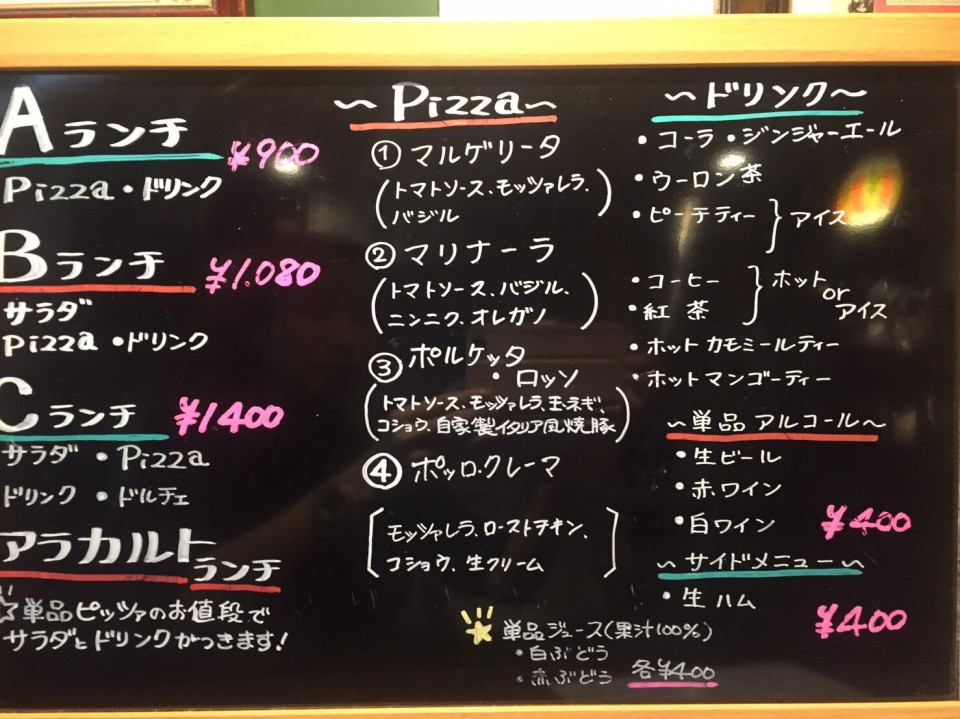 Aランチ ¥900
Pizza・ドリンク
Bランチ ¥1.080
サラダ
Pizza・ドリンク
Cランチ ¥1400
サラダ・Pizza
ドリンク・ドルチェ
アラカルト
ランチ
☆単品ピッツァのお値段で
サラダとドリンクがつきます!
~Pizza~
① マルゲリータ
(トマトソース、モッツァレラ、
バジル)
② マリナーラ
(トマトソース、バジル、
ニンニク、オレガノ)
③ ポルケッタ
・ロッソ
(トマトソース、モッツァレラ、玉ネギ、
コショウ、自家製イタリア風焼豚)
④ ポッロ・クレーマ
[モッツァレラ、ローストチキン、
コショウ、生クリーム]
☆単品ジュース(果汁100%)
・白ぶどう
・赤ぶどう 各¥400
~ドリンク~
・コーラ・ジンジャーエール
・ウーロン茶
・ピーチティー}アイス
・コーヒー}ホット
or
・紅茶 アイス
・ホットカモミールティー
・ホットマンゴーティー
~単品アルコール~
・生ビール
・赤ワイン
・白ワイン ¥400
~サイドメニュー~
・生ハム ¥400